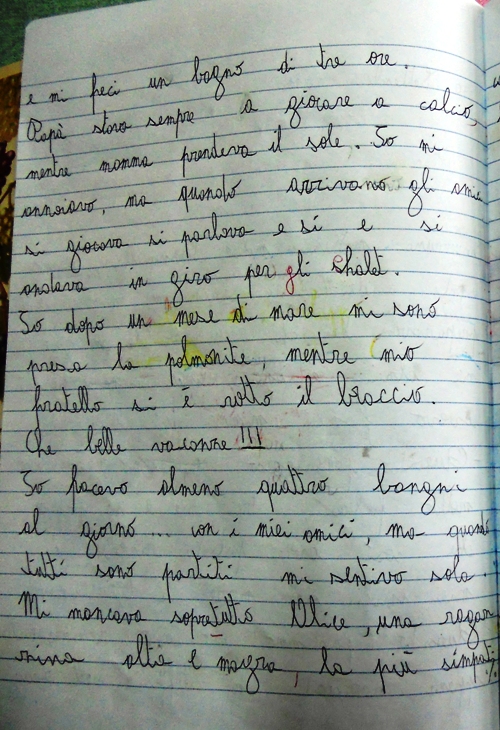 e mi feci un bagno di tre ore.
Papà stava sempre a giocare a calcio,
mentre mamma prendeva il sole. Io mi
annoiavo, ma quando arrivano gli amic
si giocava si parlava e si e si
andava in giro per gli Shalet.
Io dopo un mese di mare mi sono
presa la polmonite, mentre mio
fratello si è rotto il braccio.
Che belle vacanze !!!
Io facevo almeno quattro bangni
al giorno... con i miei amici, ma quando
tutti sono partiti mi sentivo sola.
Mi mancava sopratutto Alice, una ragaz
zina alta e magra, la più simpati